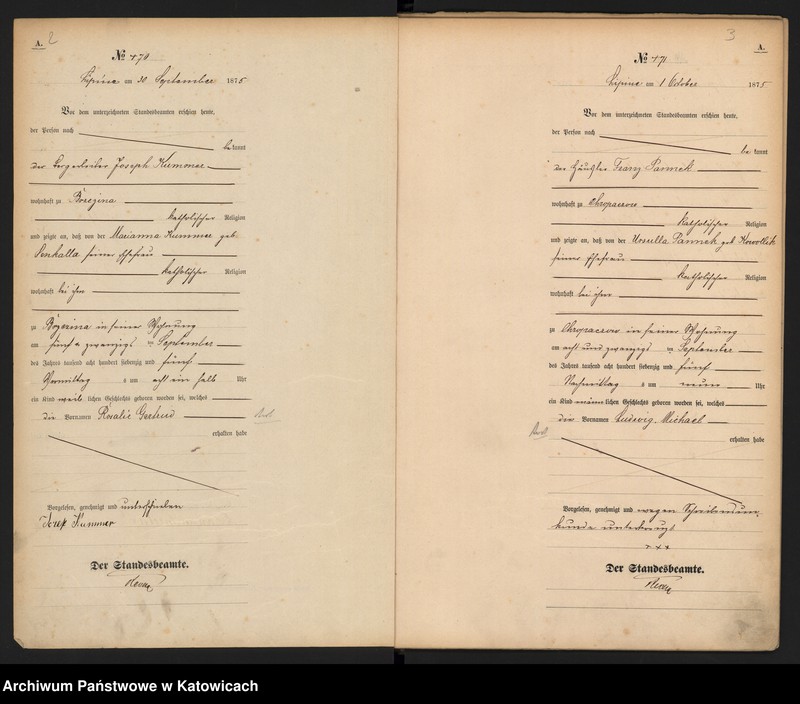 A.
2
№ 470
Lipine am 30 September 1875
Vor dem unterzeichneten Standesbeamten erschien heute,
der Person nach
bekannt
der Joseph Kummer
wohnhaft zu Brzezina
katholischer Religion
und zeigte an, daß von der Marianna Kummer geb.
Penkalla seiner Ehefrau
katholischer Religion
wohnhaft bei ihm
zu Brzezina in seiner Wohnung
am fünf u zwanzigst en September
des Jahres tausend acht hundert siebenzig und fünf
Vormittag s um acht ein halb Uhr
ein Kind weib lichen Geschlechts geboren worden sei, welches
die Vornamen Rosalie Gertrud
erhalten habe
Vorgelesen, genehmigt und unterschrieben
Josef Kummer
Der Standesbeamte.
3
A.
№ 471
Lipine am 1 October 1875
Vor dem unterzeichneten Standesbeamten erschien heute,
der Person nach
bekannt
der Häusler Franz Pannek
wohnhaft zu Chropaczow
katholischer Religion
und zeigte an, daß von der Ursulla Pannek geb Kowollik
seiner Ehefrau
katholischer Religion
wohnhaft bei ihm
zu Chropaczow in seiner Wohnung
am acht und zwanzigst en September
des Jahres tausend acht hundert siebenzig und fünf
Nachmittag s um neun Uhr
ein Kind männ lichen Geschlechts geboren worden sei, welches
die Vornamen Ludwig, Michael
erhalten habe
Vorgelesen, genehmigt und wegen Schreibensun-
kunde unterkreuzt
+++
Der Standesbeamte.
Archiwum Państwowe w Katowicach